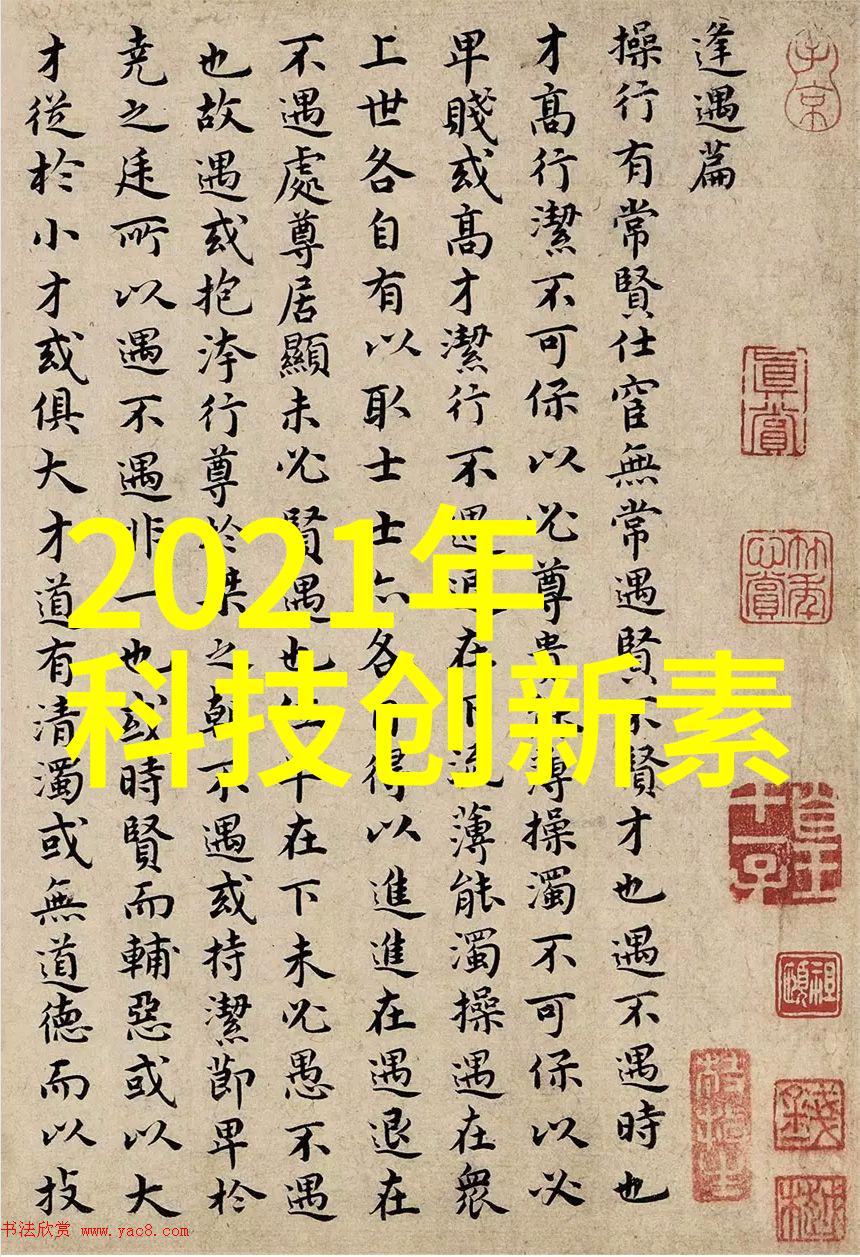 逢遇篇
操行有常賢仕宦無常遇賢不賢才也遇不遇時也
才高行潔不可保以必尊貴能薄操濁不可保以必
卑賤或高才潔行不遇退在下流薄能濁操遇在衆
上世各自有以取士士亦各自得以進進在遇退在
不遇處尊居顯未必賢遇也位卑在下未必愚不遇
也故遇或抱洿行尊於桀之朝不遇或持潔節卑於
堯之廷所以遇不遇非一也或時賢而輔惡或以大
才從於小才或俱大才道有清濁或無道德而以技
子京
真賞
2021年
科技创新素
书法欣赏 www.yac8.com